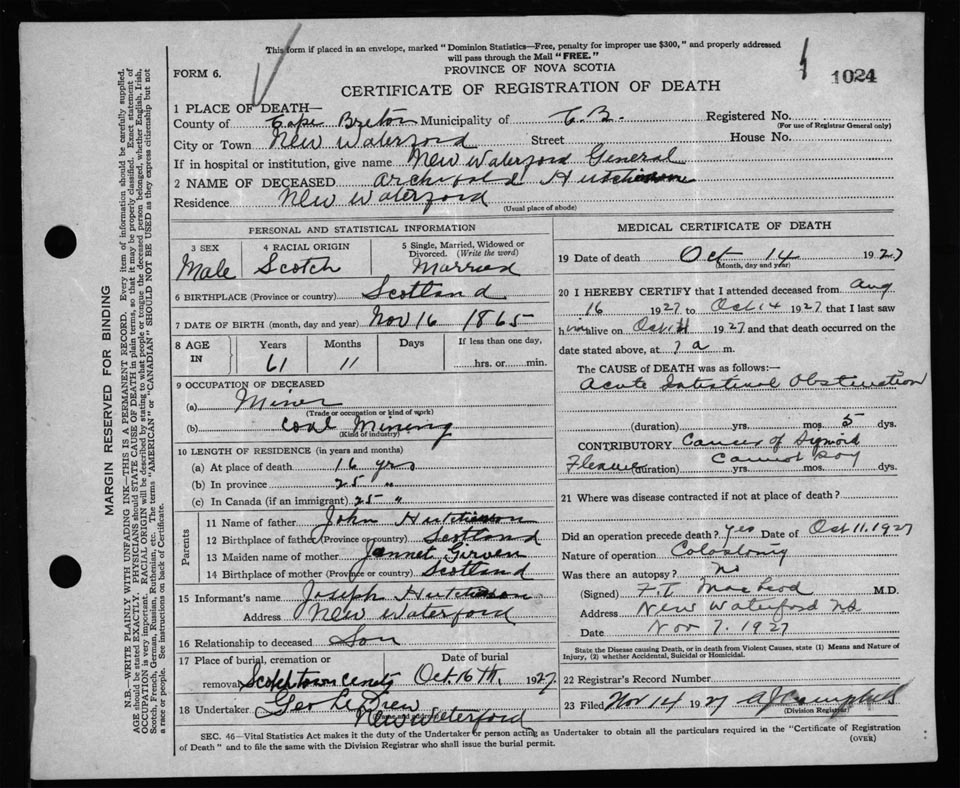 This form if placed in an envelope, marked "Dominion Statistics—Free, penalty for improper use $300," and properly addressed
will pass through the Mail "FREE."
FORM 6.
PROVINCE OF NOVA SCOTIA
1024
CERTIFICATE OF REGISTRATION OF DEATH
1 PLACE OF DEATH—
County of Cape Breton Municipality of C.B. Registered No.
(For use of Registrar General only)
City or Town New Waterford Street House No.
If in hospital or institution, give name New Waterford General
2 NAME OF DECEASED Archibald Hutchison
Residence New Waterford
(Usual place of abode)
PERSONAL AND STATISTICAL INFORMATION
3 SEX 4 RACIAL ORIGIN 5 Single, Married, Widowed or
Divorced. (Write the word)
Male Scotch Married
6 BIRTHPLACE (Province or country) Scotland
7 DATE OF BIRTH (month, day and year) Nov 16 1865
8 AGE IN Years Months Days If less than one day,
61 11 hrs. or min.
9 OCCUPATION OF DECEASED
(a) Miner
(Trade or occupation or kind of work)
(b) Coal Mining
(Kind of industry)
10 LENGTH OF RESIDENCE (in years and months)
(a) At place of death 16 yrs
(b) In province 25 "
(c) In Canada (if an immigrant) 25 "
Parents
11 Name of father John Hutchison
12 Birthplace of father (Province or country) Scotland
13 Maiden name of mother Jannet Girven
14 Birthplace of mother (Province or country) Scotland
15 Informant's name Joseph Hutchison
Address New Waterford
16 Relationship to deceased Son
17 Place of burial, cremation or Date of burial
removal Scotchtown Cemty Oct. 16th, 1927
18 Undertaker Geo
New Waterford
MEDICAL CERTIFICATE OF DEATH
19 Date of death Oct 14 1927
(Month, day and year)
20 I HEREBY CERTIFY that I attended deceased from Aug
16 1927 to Oct 14 1927 that I last saw
him alive on Oct 1927 and that death occurred on the
date stated above, at a m.
The CAUSE of DEATH was as follows:—
Acute Intestinal Obstruction
(duration) yrs. mos. 5 dys.
CONTRIBUTORY Cancer of Sigmoid
Flexure (duration) Cannot say yrs. mos. dys.
21 Where was disease contracted if not at place of death?
Did an operation precede death? Yes Date of Oct 11. 1927
Nature of operation Colostomy
Was there an autopsy? No
(Signed) F.T. MacLeod M.D.
Address New Waterford NS
Date Nov 7. 1927
State the Disease causing Death, or in death from Violent Causes, state (1) Means and Nature of
Injury, (2) whether Accidental, Suicidal or Homicidal.
22 Registrar's Record Number
23 Filed Nov 14 1927 A J Campbell
(Division Registrar)
SEC. 46—Vital Statistics Act makes it the duty of the Undertaker or person acting as Undertaker to obtain all the particulars required in the "Certificate of Registration
of Death" and to file the same with the Division Registrar who shall issue the burial permit.
(OVER)
MARGIN RESERVED FOR BINDING
N.B.—WRITE PLAINLY WITH UNFADING INK—THIS IS A PERMANENT RECORD. Every item of information should be carefully supplied.
AGE should be stated EXACTLY. PHYSICIANS should STATE CAUSE OF DEATH in plain terms, so that it may be properly classified. Exact statement of
OCCUPATION is very important. RACIAL ORIGIN will be described by stating to what people or tongue the deceased person belonged, whether English, Irish,
Scotch, French, German, Russian, Ruthenian, etc. The terms "AMERICAN" or "CANADIAN" SHOULD NOT BE USED as they express citizenship but not
a race or people. See instructions on back of Certificate.